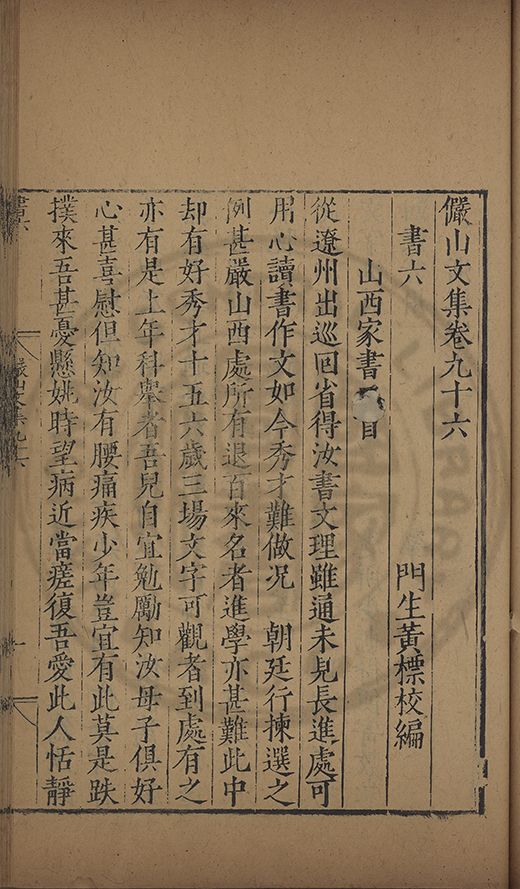 儼山文集卷九十六
門生黃標校編
書六
山西家書 目
從遼州出巡回省得汝書文理雖通未見長進處可
用心讀書作文如今秀才難做况 朝廷行揀選之
例甚嚴山西處所有退百來名者進學亦甚難此中
却有好秀才十五六歲三場文字可觀者到處有之
亦有是上年科舉者吾兒自宜勉勵知汝母子俱好
心甚喜慰但知汝有腰痛疾少年豈宜有此莫是跌
撲來吾甚憂懸姚時望病近當瘥復吾愛此人恬靜